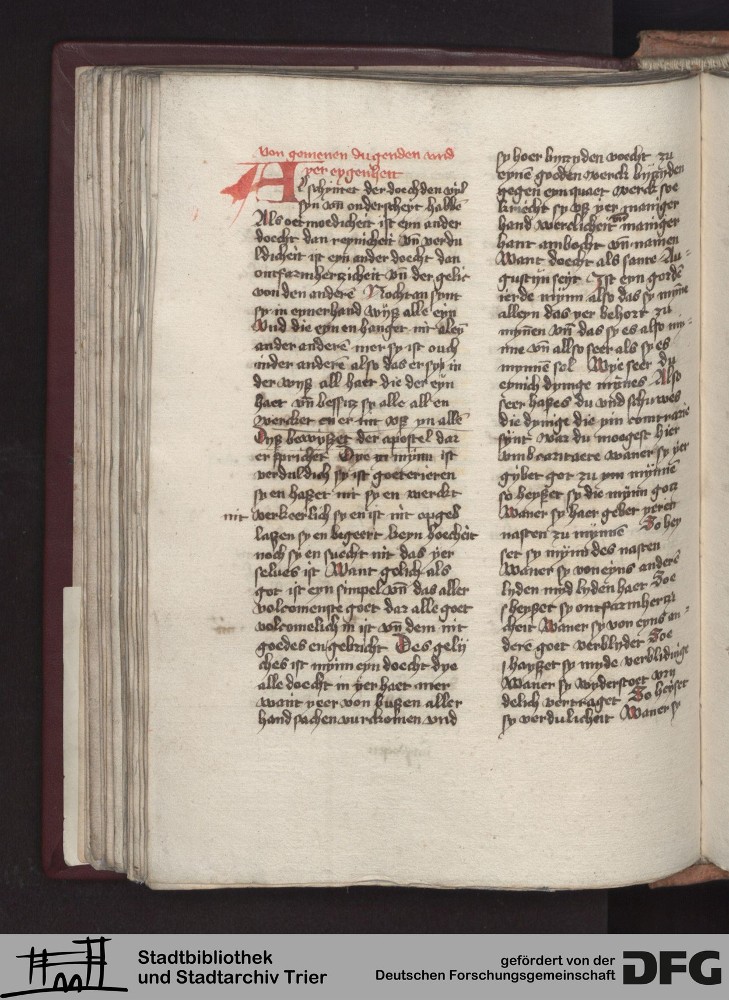 von gemenen dugenden vnd
yer eygenheit
Al schrijtet der doechden vyl
syn vn̄ onderscheyt halbē
Als oetmoedicheit ist eyn ander
doecht dan reynicheit vn̄ verdu
ldicheit ist eyn ander doecht dan
ontfarmhertzicheit vn̄ der gelic
von den anderē Nochtan synt
sy in eynerhand wijß alle eyn
Vnd die eyn en hanget nit aleyn
ander anderē mer sy ist ouch
inder anderē also das er syß in
der wyß all haet die der eyn
haet vn̄ besitz sy alle all en
wercket en er mit vß yn allē
Dyß bewyßet der apostel dar
er sprichet Dye mynn ist
verduldich sy ist goeterieren
sy en haßet nit sy en werckt
nit verkeerlich sy en ist nit opgeb
laßen sy en begeert keyn hoecheit
noch sy en suecht nit das yer
selues ist Want gelich als
got ist eyn simpel vn̄ das aller
volcomenste goet dar alle goet
volcomelich in ist vn̄ dem nit
goedes en gebricht Des gelij
ches ist mynn eyn doecht dye
alle doecht in yer haet mer
want yeer von bußen aller
hand sachen vurkomen vnd
sy hoer byzyden voecht zu
eynē goeden werck byzyden
gegen eyn quaet werck soe
kriecht sy vß yer maniger
hand werclicheit maniger
hant ambocht vn̄ namen
Want doecht als sante Au-
gustijn seyt Ist eyn gordē
ierde mynn also das sy mynē
alleyn das yer behort zu
mynnen vn̄ das sy es also my-
nne vn̄ allso seer als sy es
mynnē sol Wye seer du
eynich dynge mynnes Also
seer haßes du vnd schuwes
die dynge die yin contrarie
synt War du moegest hier
vmb verstaen waner sy yer
gybet got zu ym mynnē
so heysset sy die mynn gotz
Waner sy haer geber yeren
nasten zu mynnē So hey
set sy mynn des nasten
Waner sy von eyns anderē
lyden myd lyden haet Soe
sheysset sy ontfarmhertzi
cheit Waner sy von eyns an-
derē goet verblydet Soe
shaysset sy myde verblidinge
Waner sy wyderstoet vry
delich vertraget So heyset
sy verdulicheit Waner sy
Stadtbibliothek
und Stadtarchiv Trier
gefördert von der
Deutschen Forschungsgemeinschaft
DFG